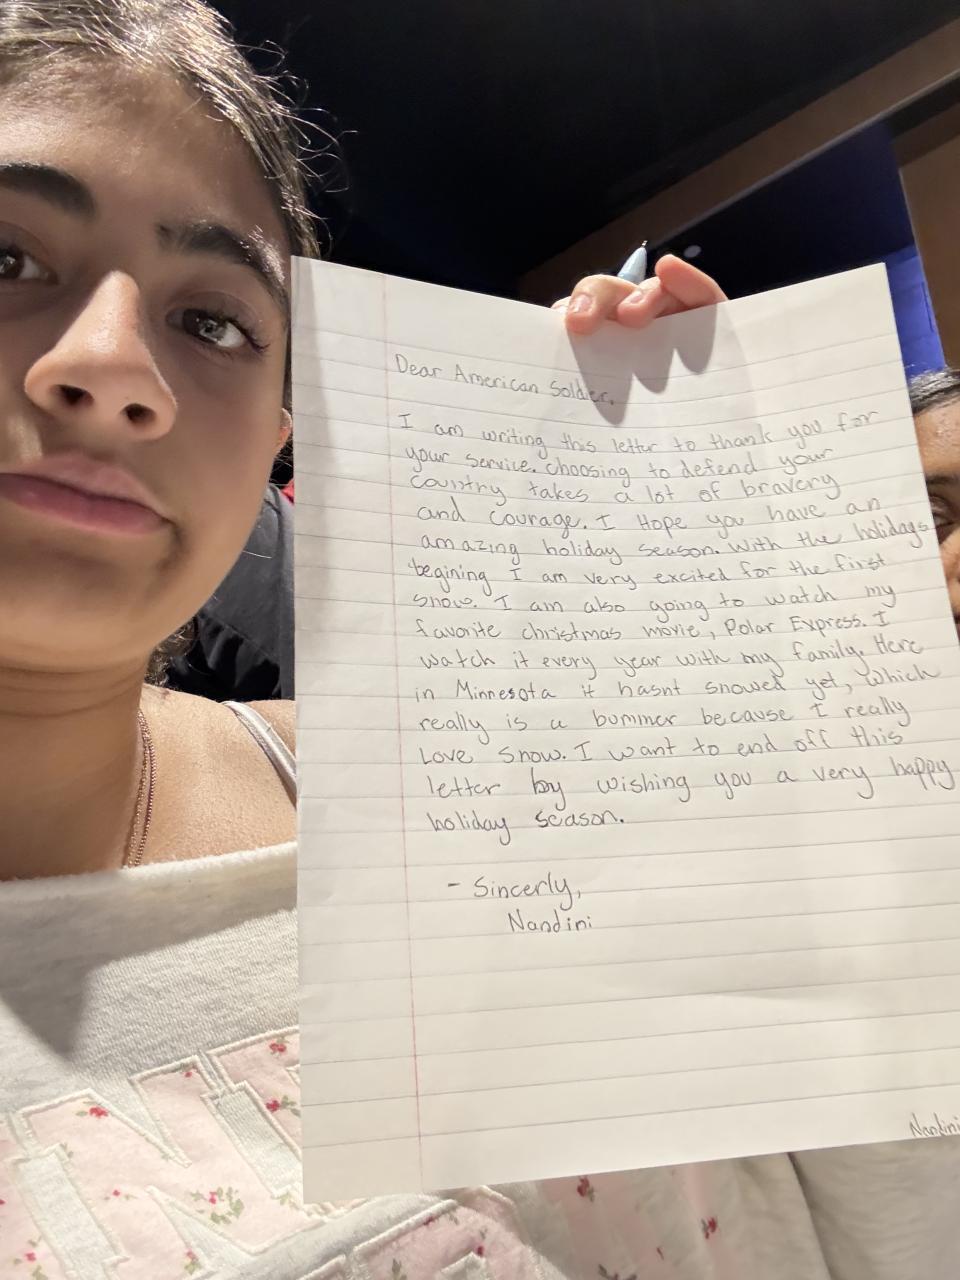 Dear American Solder,
I am writing this letter to thank you for
your service. choosing to defend your
country takes a lot of bravery
and courage. I Hope you have an
amazing holiday season. With the holidays
begining I am very excited for the first
snow. I am also going to watch my
favorite christmas movie, Polar Express. I
watch it every year with my family. Here
in Minnesota it hasnt snowed yet, which
really is a bummer because I really
Love snow. I want to end off this
letter by wishing you a very happy
holiday season.
- Sincerly,
Nandini
Nandini